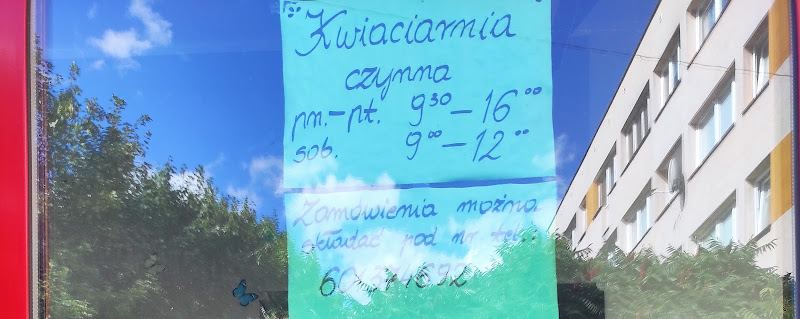 Kwiaciarnia
czynna
pn.-pt. 9³⁰-16⁰⁰
sob. 9⁰⁰-12⁰⁰
Zamówienia można
składać pod nr. tel.: